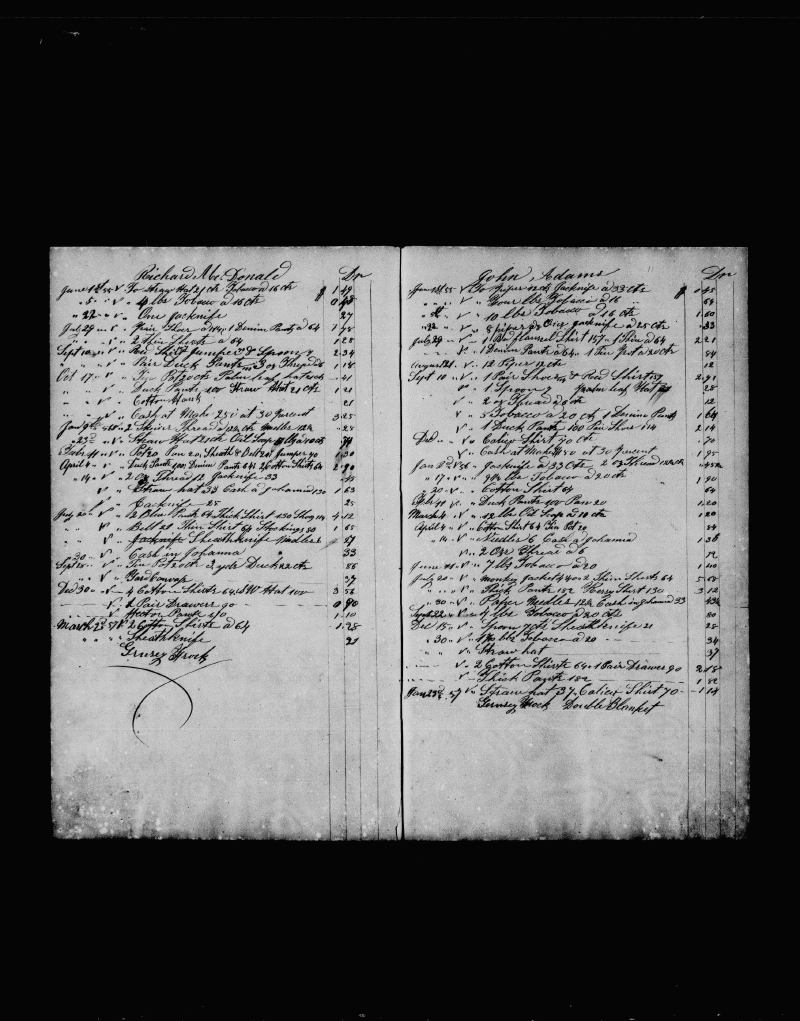 Richard Mc. Donald Dr
June 1st 55 V To Straw Hat 21 cts Tobacco a 16 cts 1 49
" 5 " " V " 4 lbs Tobacco a 16 cts 0 48
" 22 " " V " One Jacknife 27
July 29 " V " Pair Shoes a 114, 1 Denim Pants a 64 1 78
" " " V " 2 Thin Shirts a 64 1 28
Sept 10 " V " Red Shirt Jumper & Spoon 2 34
" " " V " Pair Duck Pants 1 14
Oct 17 " V " Pot 20 cts Palm leaf hat 41
" " V " Duck Pants 100 Straw Hat 21 cts 1 21
" " V " Cotton 21
" " V " Cash at Mahe at 30 Percent 3 25
Jan 9th 56 V " 2 Skeins Thread a 12 cts Needles 12 25
" 23d " V " Straw Hat 21 cts Oil Soap
Febr 11 " V " Pot 20 Pan 20, Sheath & Belt 20 Jumper 70 1 30
April 4 " V " Duck Pants 100 Denim Pants 64 2 Cotton Shirts 64 2 90
" 14 " V " 2 Oz Thread 12 Jacknife 33 45
V " Straw hat 33 Cash a Johanna 130 1 63
V " Jacknife 25 25
July 20 " V " 2 Blue Pants 64 Thick Shirt 130 Shoes 114 4 12
" " V " Belt 21 Thin Shirt 64 Stockings 80 1 65
" " V " Sheathknife Needles 27
" 30 " V " Cash in Johanna 33
Sept 18 " V " Tin Pot 20 cts 3 yds Duck 22 cts 86
" " V " Yard Canvass 37
Dec 30 " V " 4 Cotton Shirts 64, SW Hat 100 3 56
V " 1 Pair Drawers 90 0 90
V " Pants 110 1 10
March 23d 57 V " 2 Cotton Shirts a 64 1 28
" " " Sheathknife 21
Grnsey Frock
John Adams Dr
June 1st 55 V To Pipes 12 cts Jacknife a 33 cts 0 45
" " V " Four lbs Tobacco a 16 64
" " V " 10 lbs Tobacco a 16 cts 1 60
" 22 " V " 8 pipes 08 One jacknife a 25 cts 33
July 29 " V " 1 Red flannel Shirt 157, 1 Thin a 64 2 21
" V " 1 Denim Pants a 64, 1 Tin Pot a 20 cts 84
August 21 " V " 12 Pipes 12 cts 12
Sept 10 " V " 1 Pair Shoes Red Shirt 157 2 71
" V " 1 Spoon 7 palm leaf Hat 28
" V " 2 oz Thread a 6 cts 12
" V " 5 Tobacco a 20 cts 1 Denim Pants 1 64
" V " 1 Duck Pants 100 Pair Shoes 114 2 14
Dec " V " Calico Shirt 70 cts 70
V " Cash at Mahe at 30 Percent 1 95
Jan 2d 56 " Jacknife a 33 cts 2 Thread
" 17 " V " 9 1/2 lbs Tobacco a 20 cts 1 90
" 20 " V " Cotton Shirt 64 64
Feb 11 " V " Duck Pants 100 Pan 20 1 20
March 4 V " 12 lbs Oil Soap a 10 cts 1 20
April 4 " V " Cotton Shirt 64 Tin Pot 20 84
" 14 " V " Needles 6 Cash a Johanna 1 36
V " 2 Ozs Thread a 6 12
June 21 " V " 7 lbs Tobacco a 20 1 40
July 20 " V " Monkey Jacket 440, 2 Thin Shirts 64 5 68
" " V " Thick Pants 182 Kersey Shirt 130 3 12
" 30 " V " Paper Needles 12 Cash in Johanna 33
Sept 22 " V " 4 lbs Tobacco a 20 cts 80
Dec 15 " V " Spoon 7 cts Sheathknife 21 28
" 30 " V " lbs Tobacco a 20 34
" V " Straw hat 37
V " 2 Cotton Shirts 64, 1 Pair Drawers 90 2 18
V " Thick Pants 182 1 82
Jan 23d 57 V " Straw hat 37, Calico Shirt 70 1 14
Gernsey Frock Double Blanket